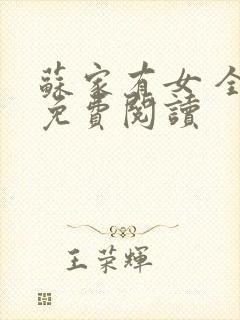 蘇家有女 全
免費閱讀
王荣輝